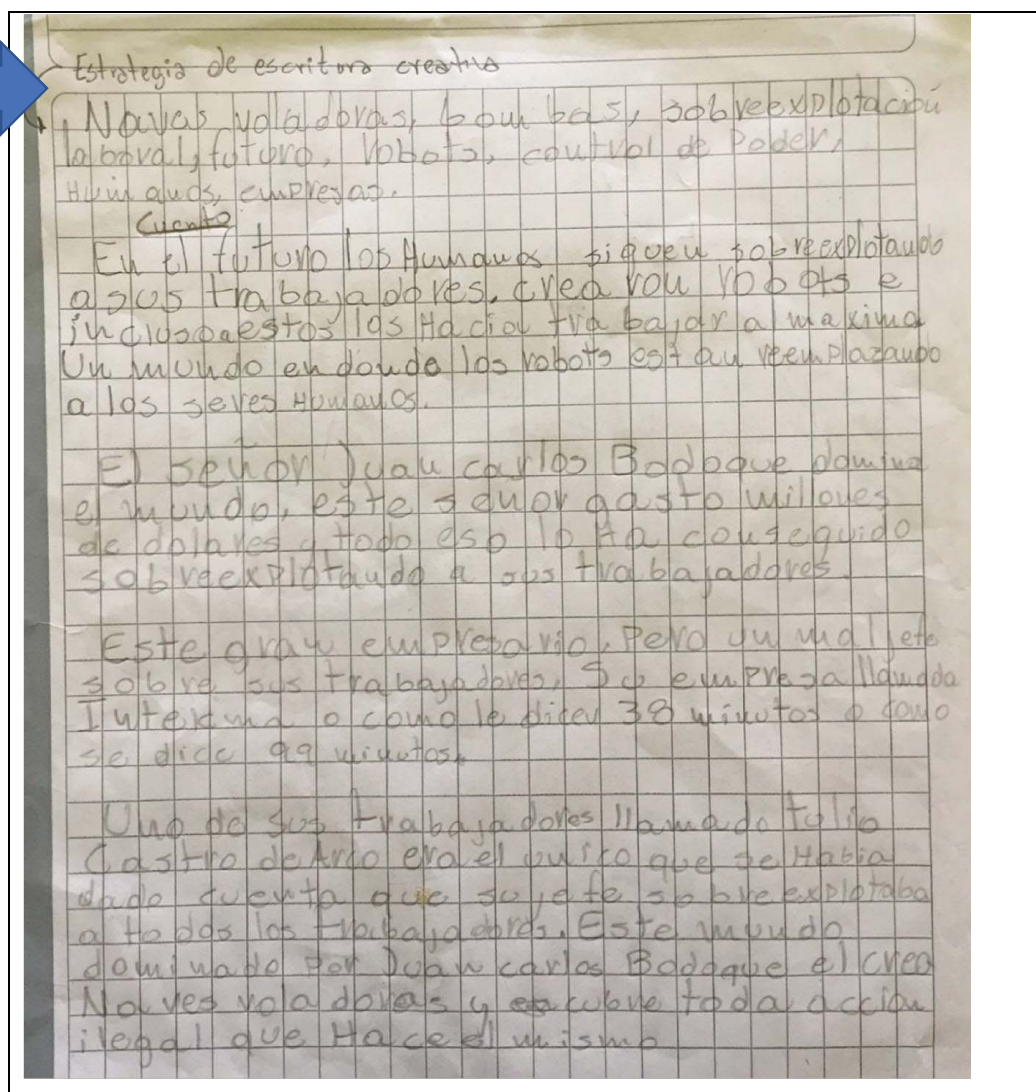 Estrategia de escritura creativa
Navas voladoras, boumbas, sobreexplotación
laboral, futuro, robots, control de Poder,
Humanos, empresas.
Cuento
En el futuro los Humanos siguen sobreexplotando
a sus trabajadores. crearon robots e
inclusoaestos los Hacian trabajar al maximo
Un mundo en donde los robots estan reemplazando
a los seres Humanos.
El señor Juan carlos Bodoque domina
el mundo, este señor gasto millones
de dolares y todo eso lo Ha conseguido
sobreexplotando a sus trabajadores.
Este gran empresario, Pero un mal jefe
sobre sus trabajadores, Su empresa llamada
o como le dicen 38 minutos o como
se dice minutos.
Uno de sus trabajadores llamado tulio
Castro de era el que se Habia
dado cuenta que su jefe sobreexplotaba
a todos los trabajadores. Este mundo
dominado por Juan carlos Bodoque el crea
Naves voladoras y encubre toda acción
ilegal que Hace el mismo